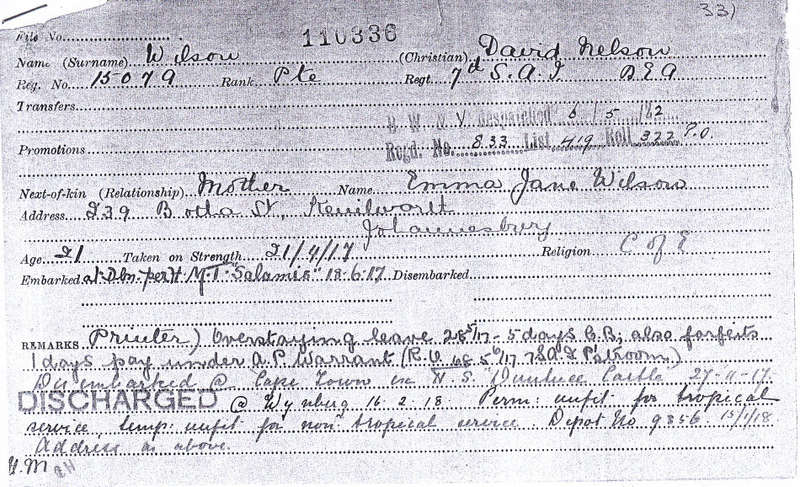 331
File No.
110336
Name (Surname) Wilson (Christian) David Nelson
Reg. No. 15079 Rank Pte Regt. 7th S.A.I B E A
Transfers
B W M V Despatched 6/5/
Promotions Regd. No. 833 List 419 Roll 322 P.O.
Next-of-kin (Relationship) Mother Name Emma Jane Wilson
Address 239 Botha St, Kenilworth
Johannesburg
Age 21 Taken on Strength 21/4/17 Religion C of E
Embarked at Dbn. per H.M.T. "Salamis" 18.6.17 Disembarked
REMARKS Printer) Overstaying leave 28/5/17 - 5 days C.B; also forfeits
1 days pay under R.P Warrant (R.O. 68 5/6/17 7 S A I Potroom)
Disembarked @ Cape Town in H.S. "Dunluce Castle" 27-11-17.
DISCHARGED @ Wynburg 16-2-18. Perm: unfit for tropical
service temp: unfit for non tropical service Depot No 9856 15/1/18
Address as above.